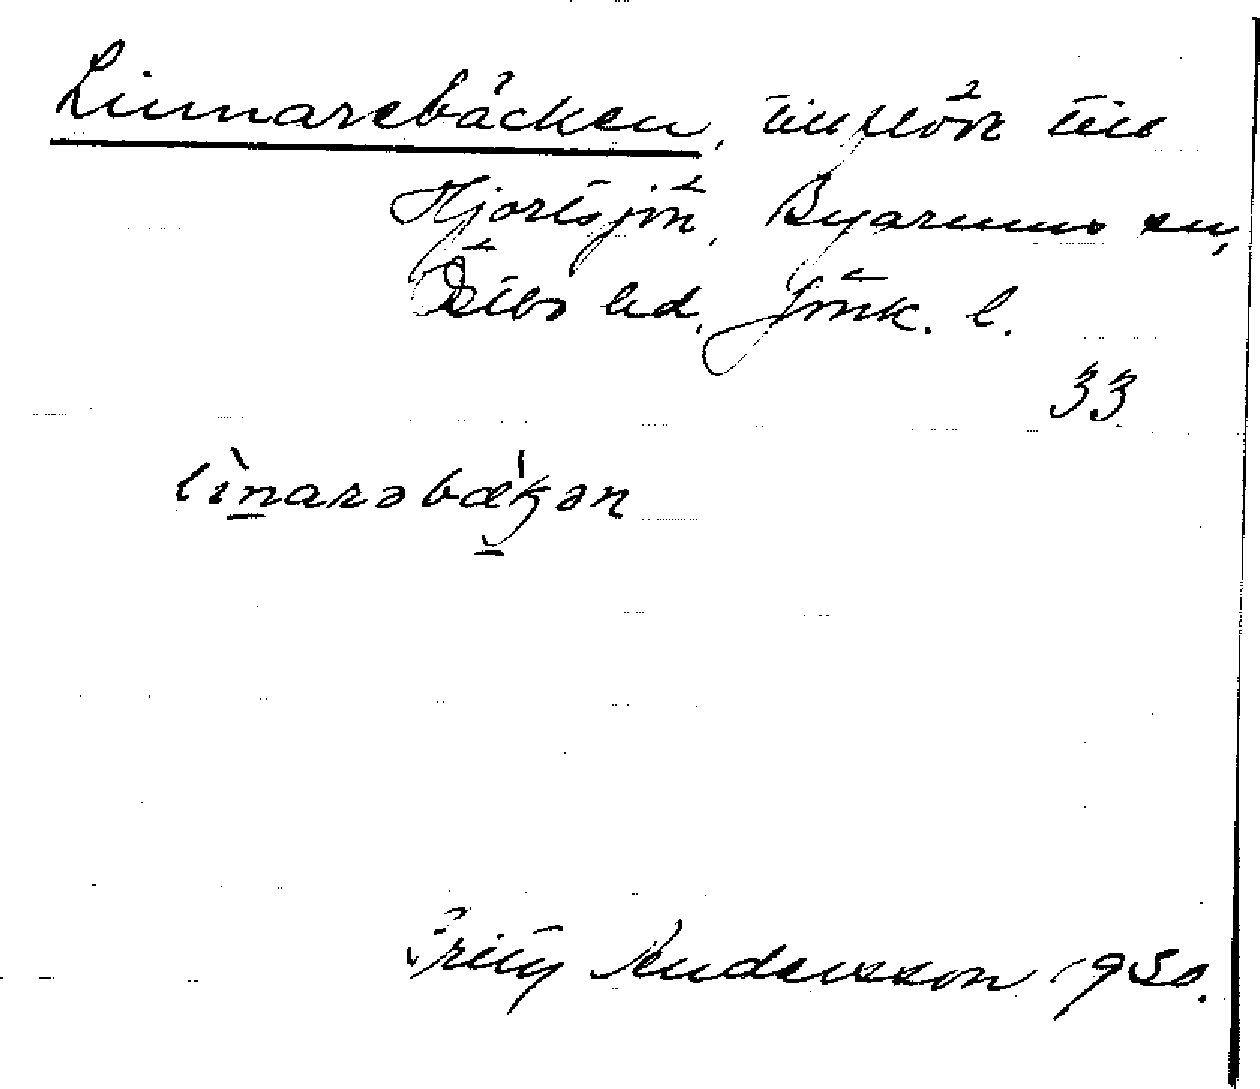 Linnarebäcken, tillflöde till
Hjortsjön, Byarums sn,
Östbo hd, Jönk. l.
33
lìnarəbækən
Fritz Andersson 1930.